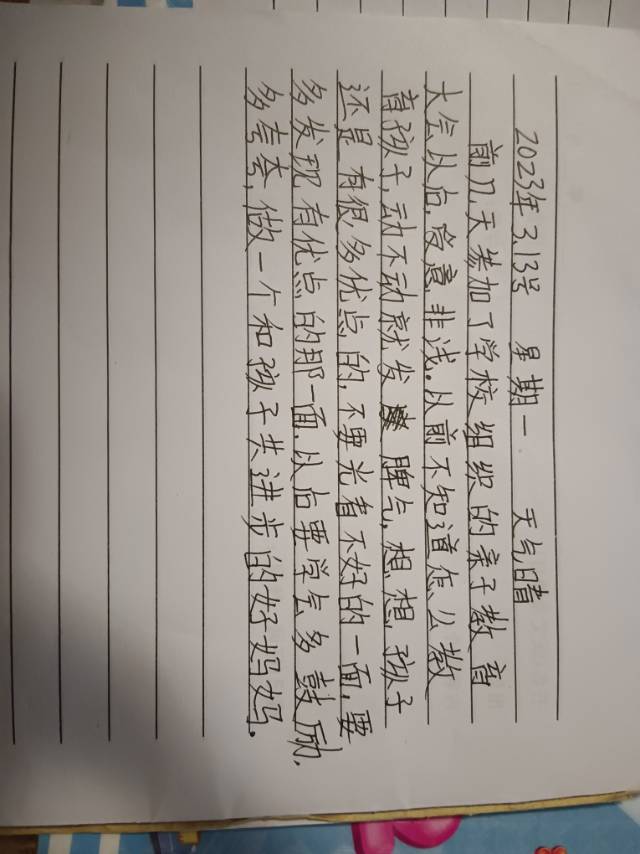 2023年3.13号 星期一 天气晴
前几天参加了学校组织的亲子教育
大会以后,受意非浅。从前不知道怎么教
育孩子,动不动就发脾气,想想,孩子
还是有很多优点的,不要光看不好的一面,要
多发现有优点的那一面,以后要学会多鼓励,
多夸夸,做一个和孩子共进步的好妈妈。